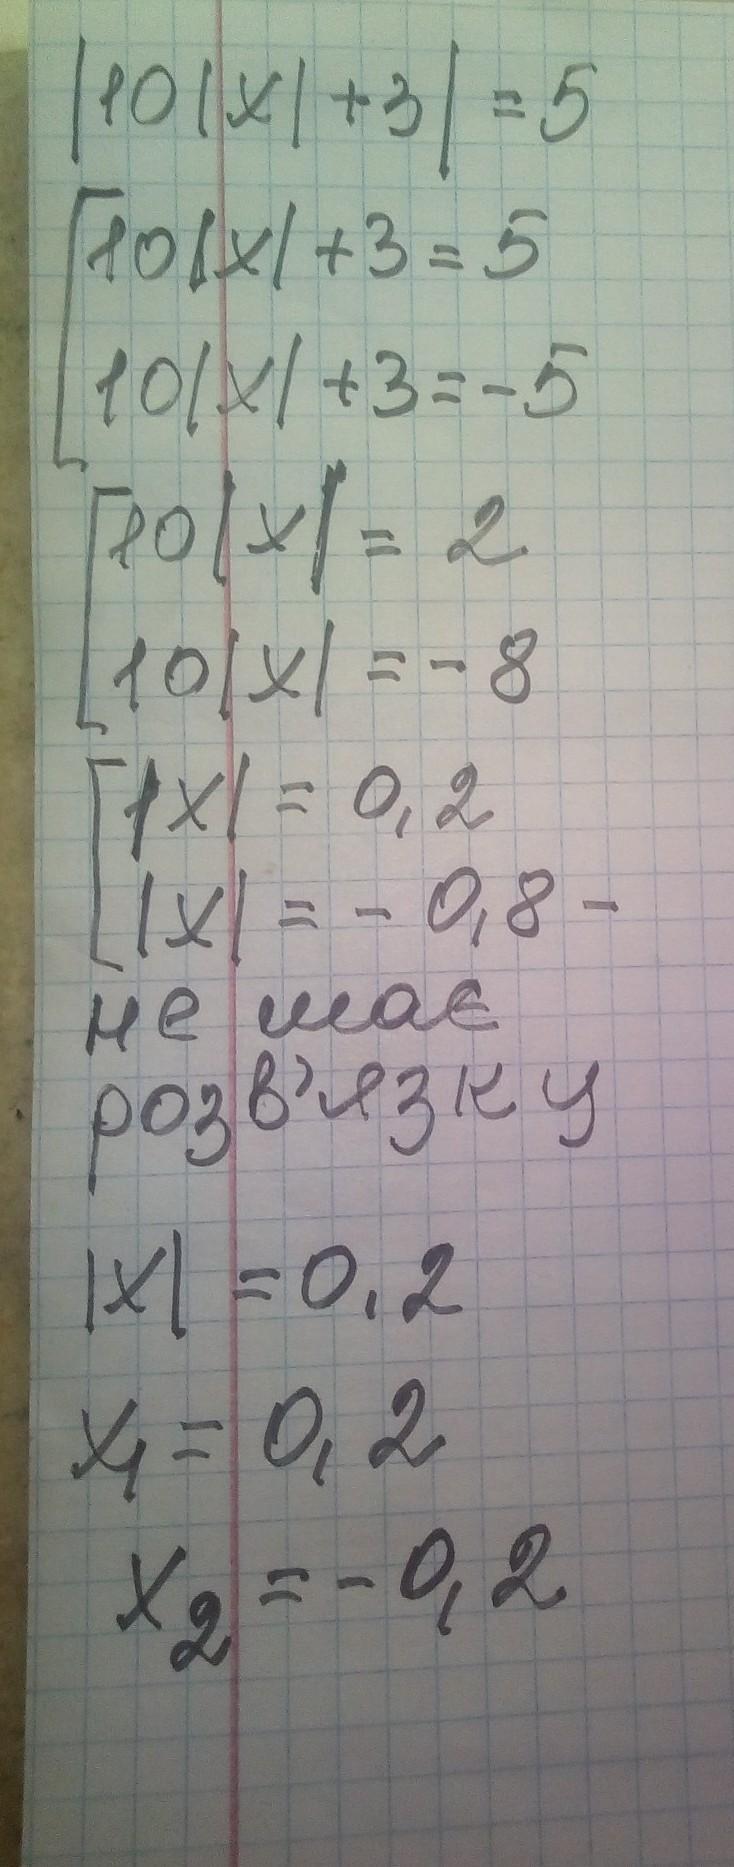 |10|x|+3|=5
[10|x|+3=5
10|x|+3=-5
[10|x|=2
10|x|=-8
[|x|=0,2
|x|=-0,8-
не має
розв'язку
|x|=0,2
x₁=0,2
x₂=-0,2